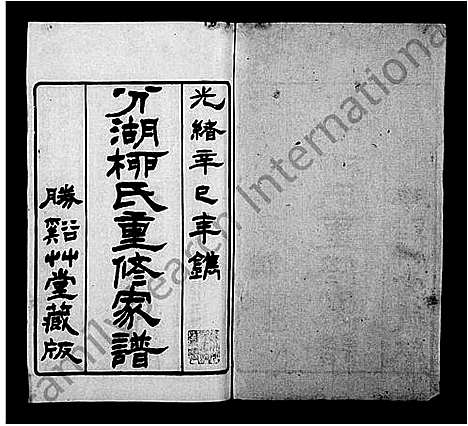 光緒辛巳年鐫
分湖柳氏重修家譜
勝谿艸堂藏版
Family Search International